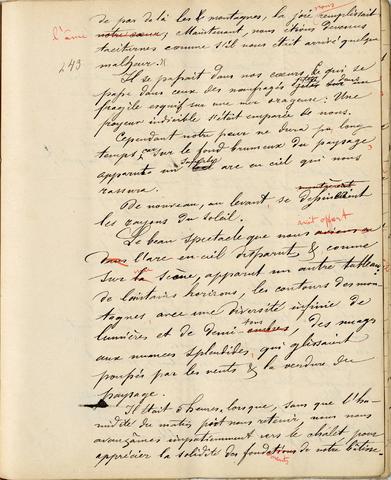 de par delà les montagnes, la joie nous remplissait
l'âme notre âme, Maintenant, nous étions devenus
taciturnes comme s'il nous était arrivé quelque
malheur.
243
Il se passait dans nos cœurs, ce qui se
passe dans ceux des naufragés jetés sur un
fragile esquif sur une mer orageuse. Une
frayeur indicible s'était emparée de nous.
Cependant notre peur ne dura pas long
temps, car sur le fond brumeux du paysage
apparut un superbe arc en ciel qui nous
rassura.
De nouveau, au levant se
les rayons du soleil.
Le beau spectacle que nous avait offert
l'arc en ciel disparut & comme
sur la scène, apparut un autre tableau:
de lointains horizons, les contours des mon-
tagnes avec une diversité infinie de
lumières et de demi-tons ombres, des nuages
aux nuances splendides, qui glissaient
poussés par les vents & la verdure du
paysage.
Il était 6 heures, lorsque, sans que l'hu-
midité du matin pût nous retenir, nous nous
avançâmes impatiemment vers le chalet pour
apprécier la solidité des fondations de notre bâtisse.